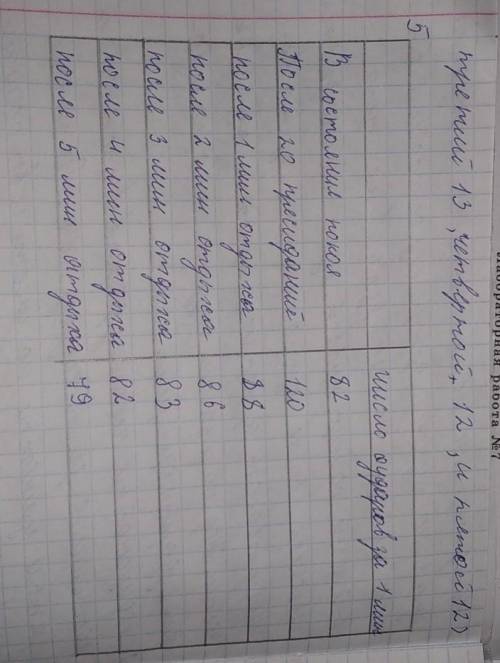 Лабораторная работа №7
третий 13, четвертой, 12, и пятой 12)
5
число ударов за 1 мин
В состоянии покоя 82
После 20 приседаний 120
после 1 мин отдыха 88
после 2 мин отдыха 86
после 3 мин отдыха 83
после 4 мин отдыха 82
после 5 мин отдыха 79